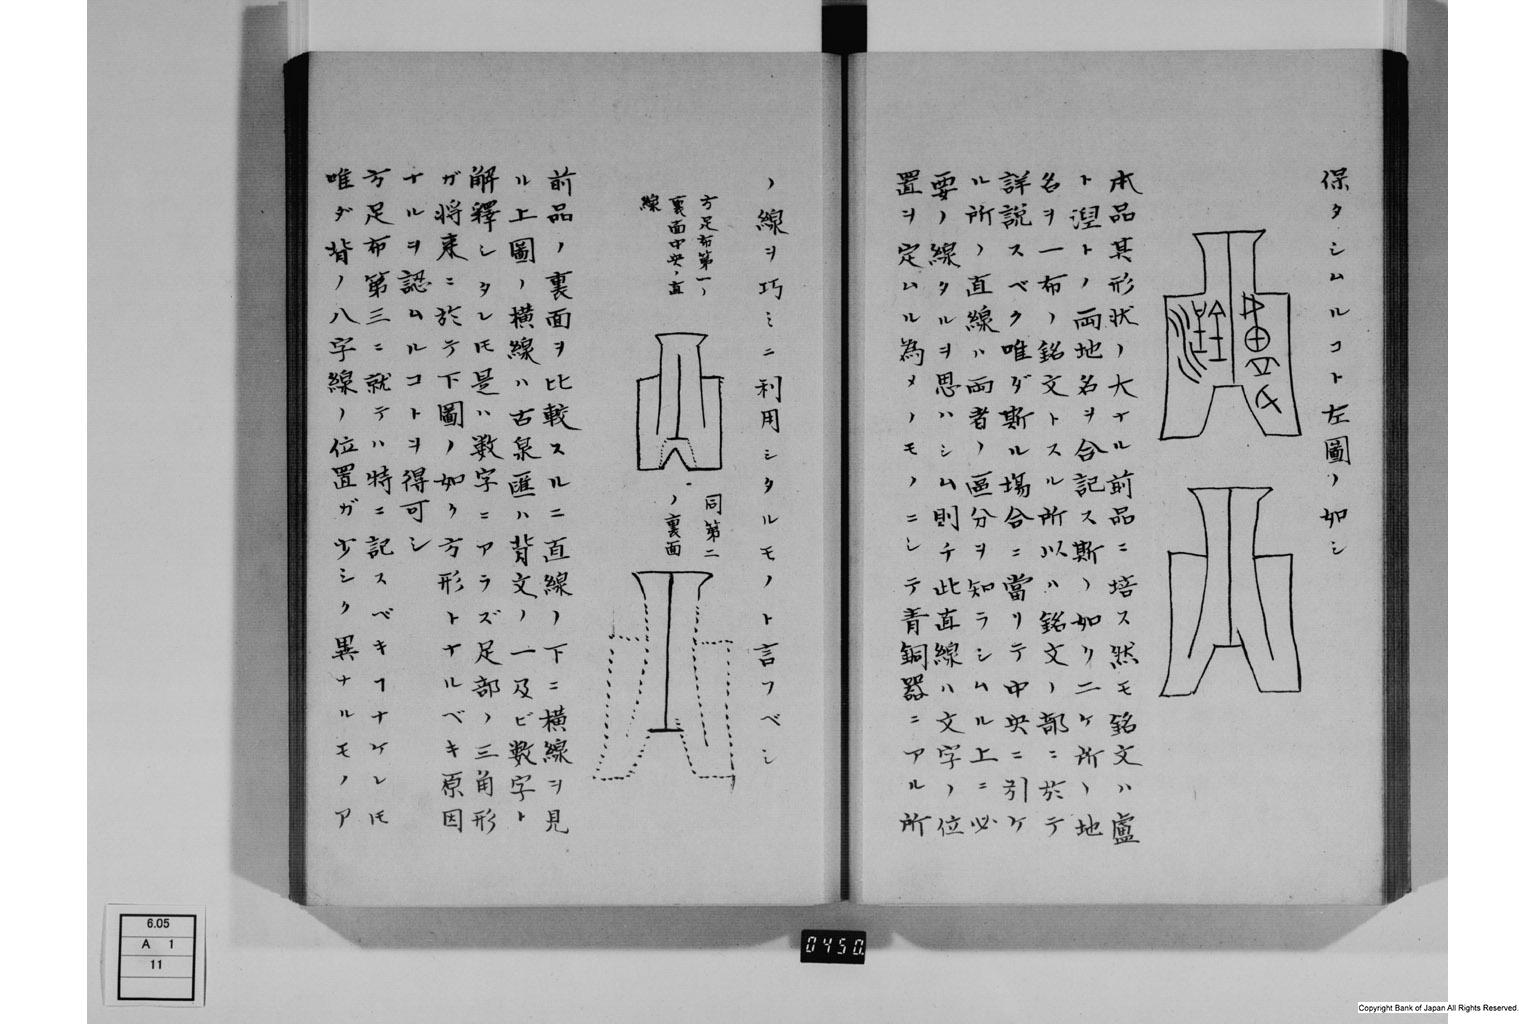 保タシムルコト左圖ノ如シ
本品其形状ノ大ナル前品ニ培ス然モ銘文ハ盧
ト涅トノ両地名ヲ合記ス斯ノ如ク二ケ所ノ地
名ヲ一布ノ銘文トスル所以ハ銘文ノ部ニ於テ
詳説スベク唯ダ斯ル場合ニ當リテ中央ニ引ケ
ル所ノ直線ハ両者ノ區分ヲ知ラシムル上ニ必
要ノ線タルヲ思ハシム則チ此直線ハ文字ノ位
置ヲ定ムル為メノモノニシテ青銅器ニアル所
ノ線ヲ巧ミニ利用シタルモノト言フベシ
方足布第一ノ
裏面中央ノ直
線
同第二
ノ裏面
前品ノ裏面ヲ比較スルニ直線ノ下ニ横線ヲ見
ル上圖ノ横線ハ古泉匯ハ背文ノ一及ビ數字ト
解釋シタレ𪜈是ハ数字ニアラズ足部ノ三角形
ガ将来ニ於テ下圖ノ如ク方形トナルベキ原因
ナルヲ認ムルコトヲ得可シ
方足布第三ニ就テハ特ニ記スベキヿナケレ𪜈
唯ダ背ノ八字線ノ位置ガ少シク異ナルモノア
6.05
A 1
11
0450
Copyright Bank of Japan All Rights Reserved.